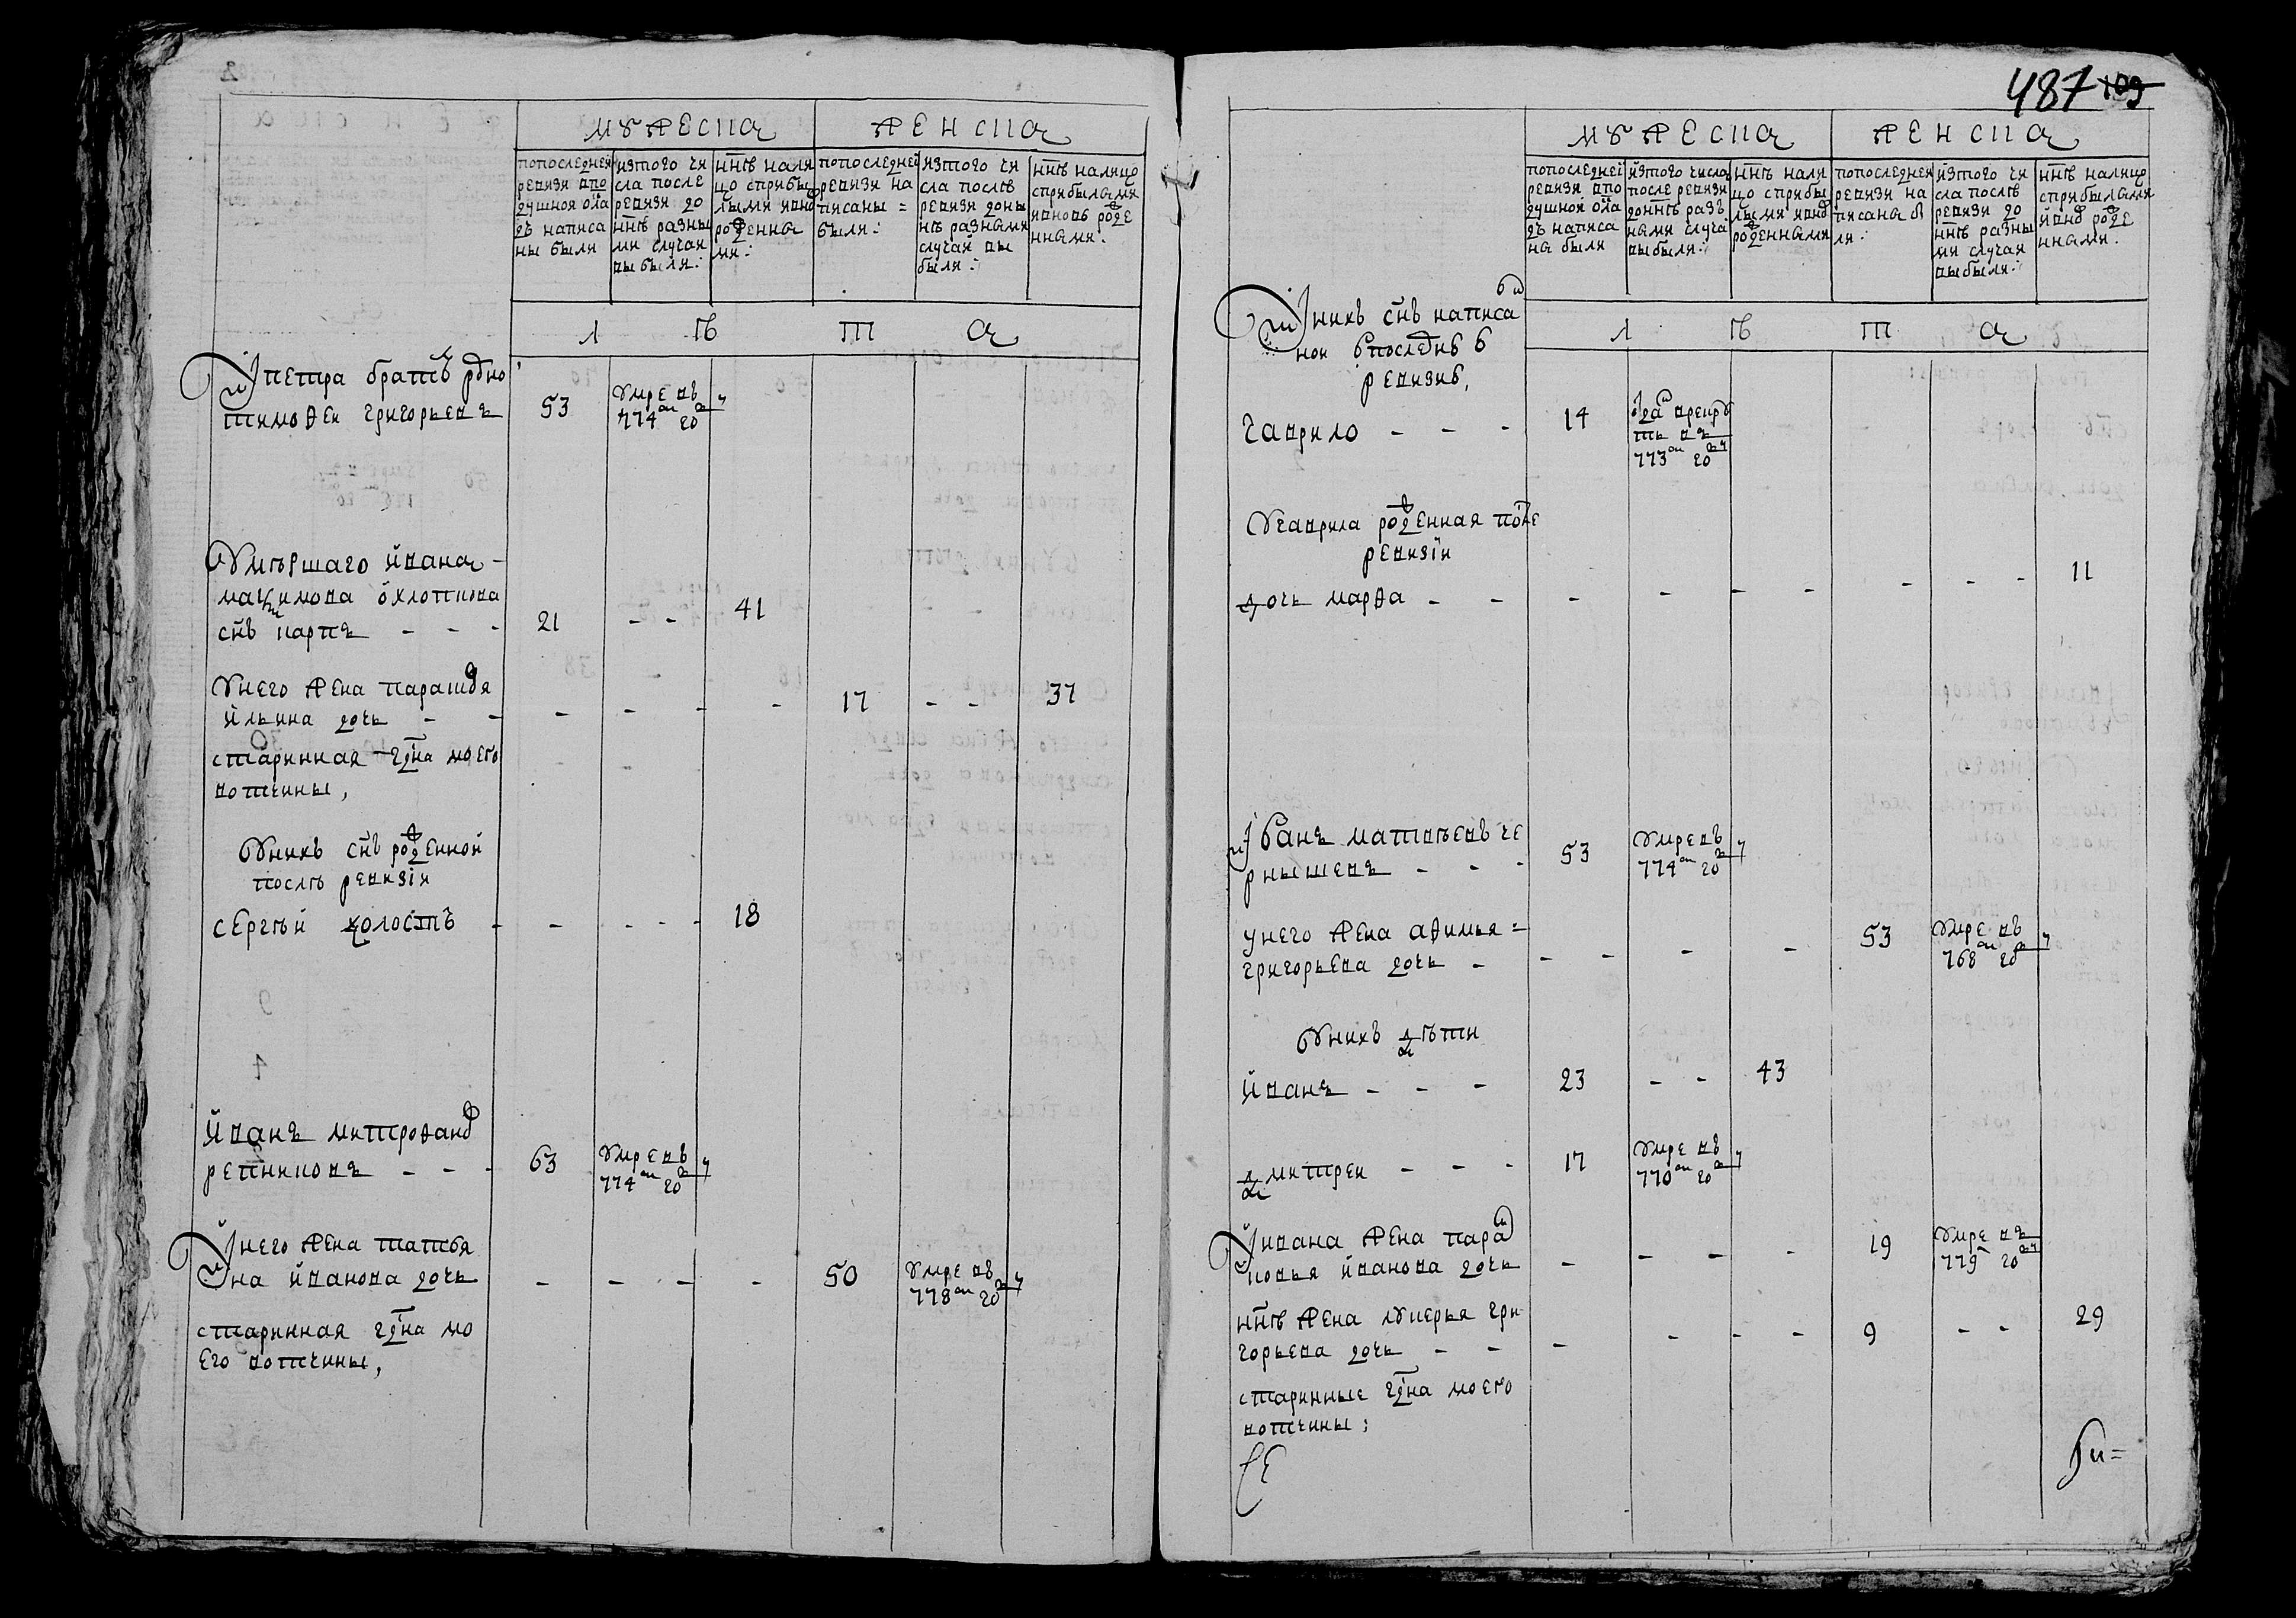 мужеска
женска
попоследней
ревизи впо
душной окла
дъ написа
ны были
изтого чи
сла после
ревизи до
ннѣ разны
ми случаи
выбыли:
ннѣ нали
цо сприбы
лыми ивно
рожденны
ми:
попоследней
ревизи на
писаны =
были:
изтого чи
сла послѣ
ревизи доны
нѣ разными
случаи вы
были:
ннѣ налицо
сприбылыми
ивновь рожде
нными.
л ѣ т а
упетра братъ родно
тимоѳеи григорьевъ
53
умре въ
774м году
Умѣршаго ивана
максимова охлопкова
снъ карпъ - - -
21
- -
41
Унего жена парасковя
ильина дочь - -
17
- -
37
старинная чдна моего
вотчины,
Уникъ снъ рожденной
послѣ ревизiи
сергѣй холостъ
18
Иванъ митроѳанов
репниковъ - - -
63
умре въ
774м году
Унего жена татья
на иванова дочь
50
умре въ
778м году
старинная чдна мо
его вотчины,
487 109
мужеска
женска
попоследней
ревизи впо
душной окла
дъ написа
ны были
изтого числа
после ревизи
доннѣ разъ
ными случа
выбыли:
ннѣ нали
цо сприбы
лыми ивно
рожденными
попоследней
ревизи на
писаны бы
ли:
изтого чи
сла послѣ
ревизи до
ннѣ разны
ми случаи
выбыли:
ннѣ налицо
сприбылыми
ивно рожде
нными.
л ѣ т а
Уникъ снъ написа
нои впоследнѣ в
ревизиѣ,
гаврило - - -
14
773м году
Угаврила рожденная после
ревизiи
дочь марѳа - -
11
Иванъ матвѣевъ че
рнышевъ - - -
53
умре въ
774м году
унего жена аѳимья =
григорьева дочь -
53
умре въ
768м году
Уникъ дѣти
Иванъ - - -
23
- -
43
дмитреи - - -
17
умре въ
770м году
Уивана жена пара
ковья иванова дочь
19
умре въ
779 году
ннѣ жена лукерья гри
горьева дочь - -
9
- -
29
старинные чдна моего
вотчины: